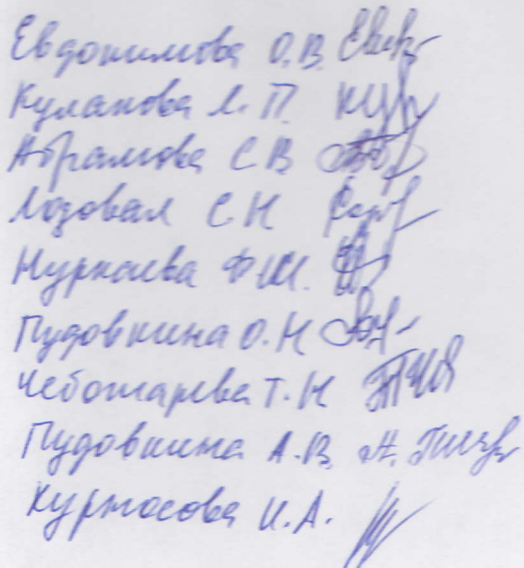 Евдокимова О.В.
Кулакова Л.П.
Абрамова С В
Лозовая С Н
Нуркаева Ф.М.
Пудовкина О.Н
Чеботарева Т.Н
Пудовкина А.В.
Куртосова И.А.